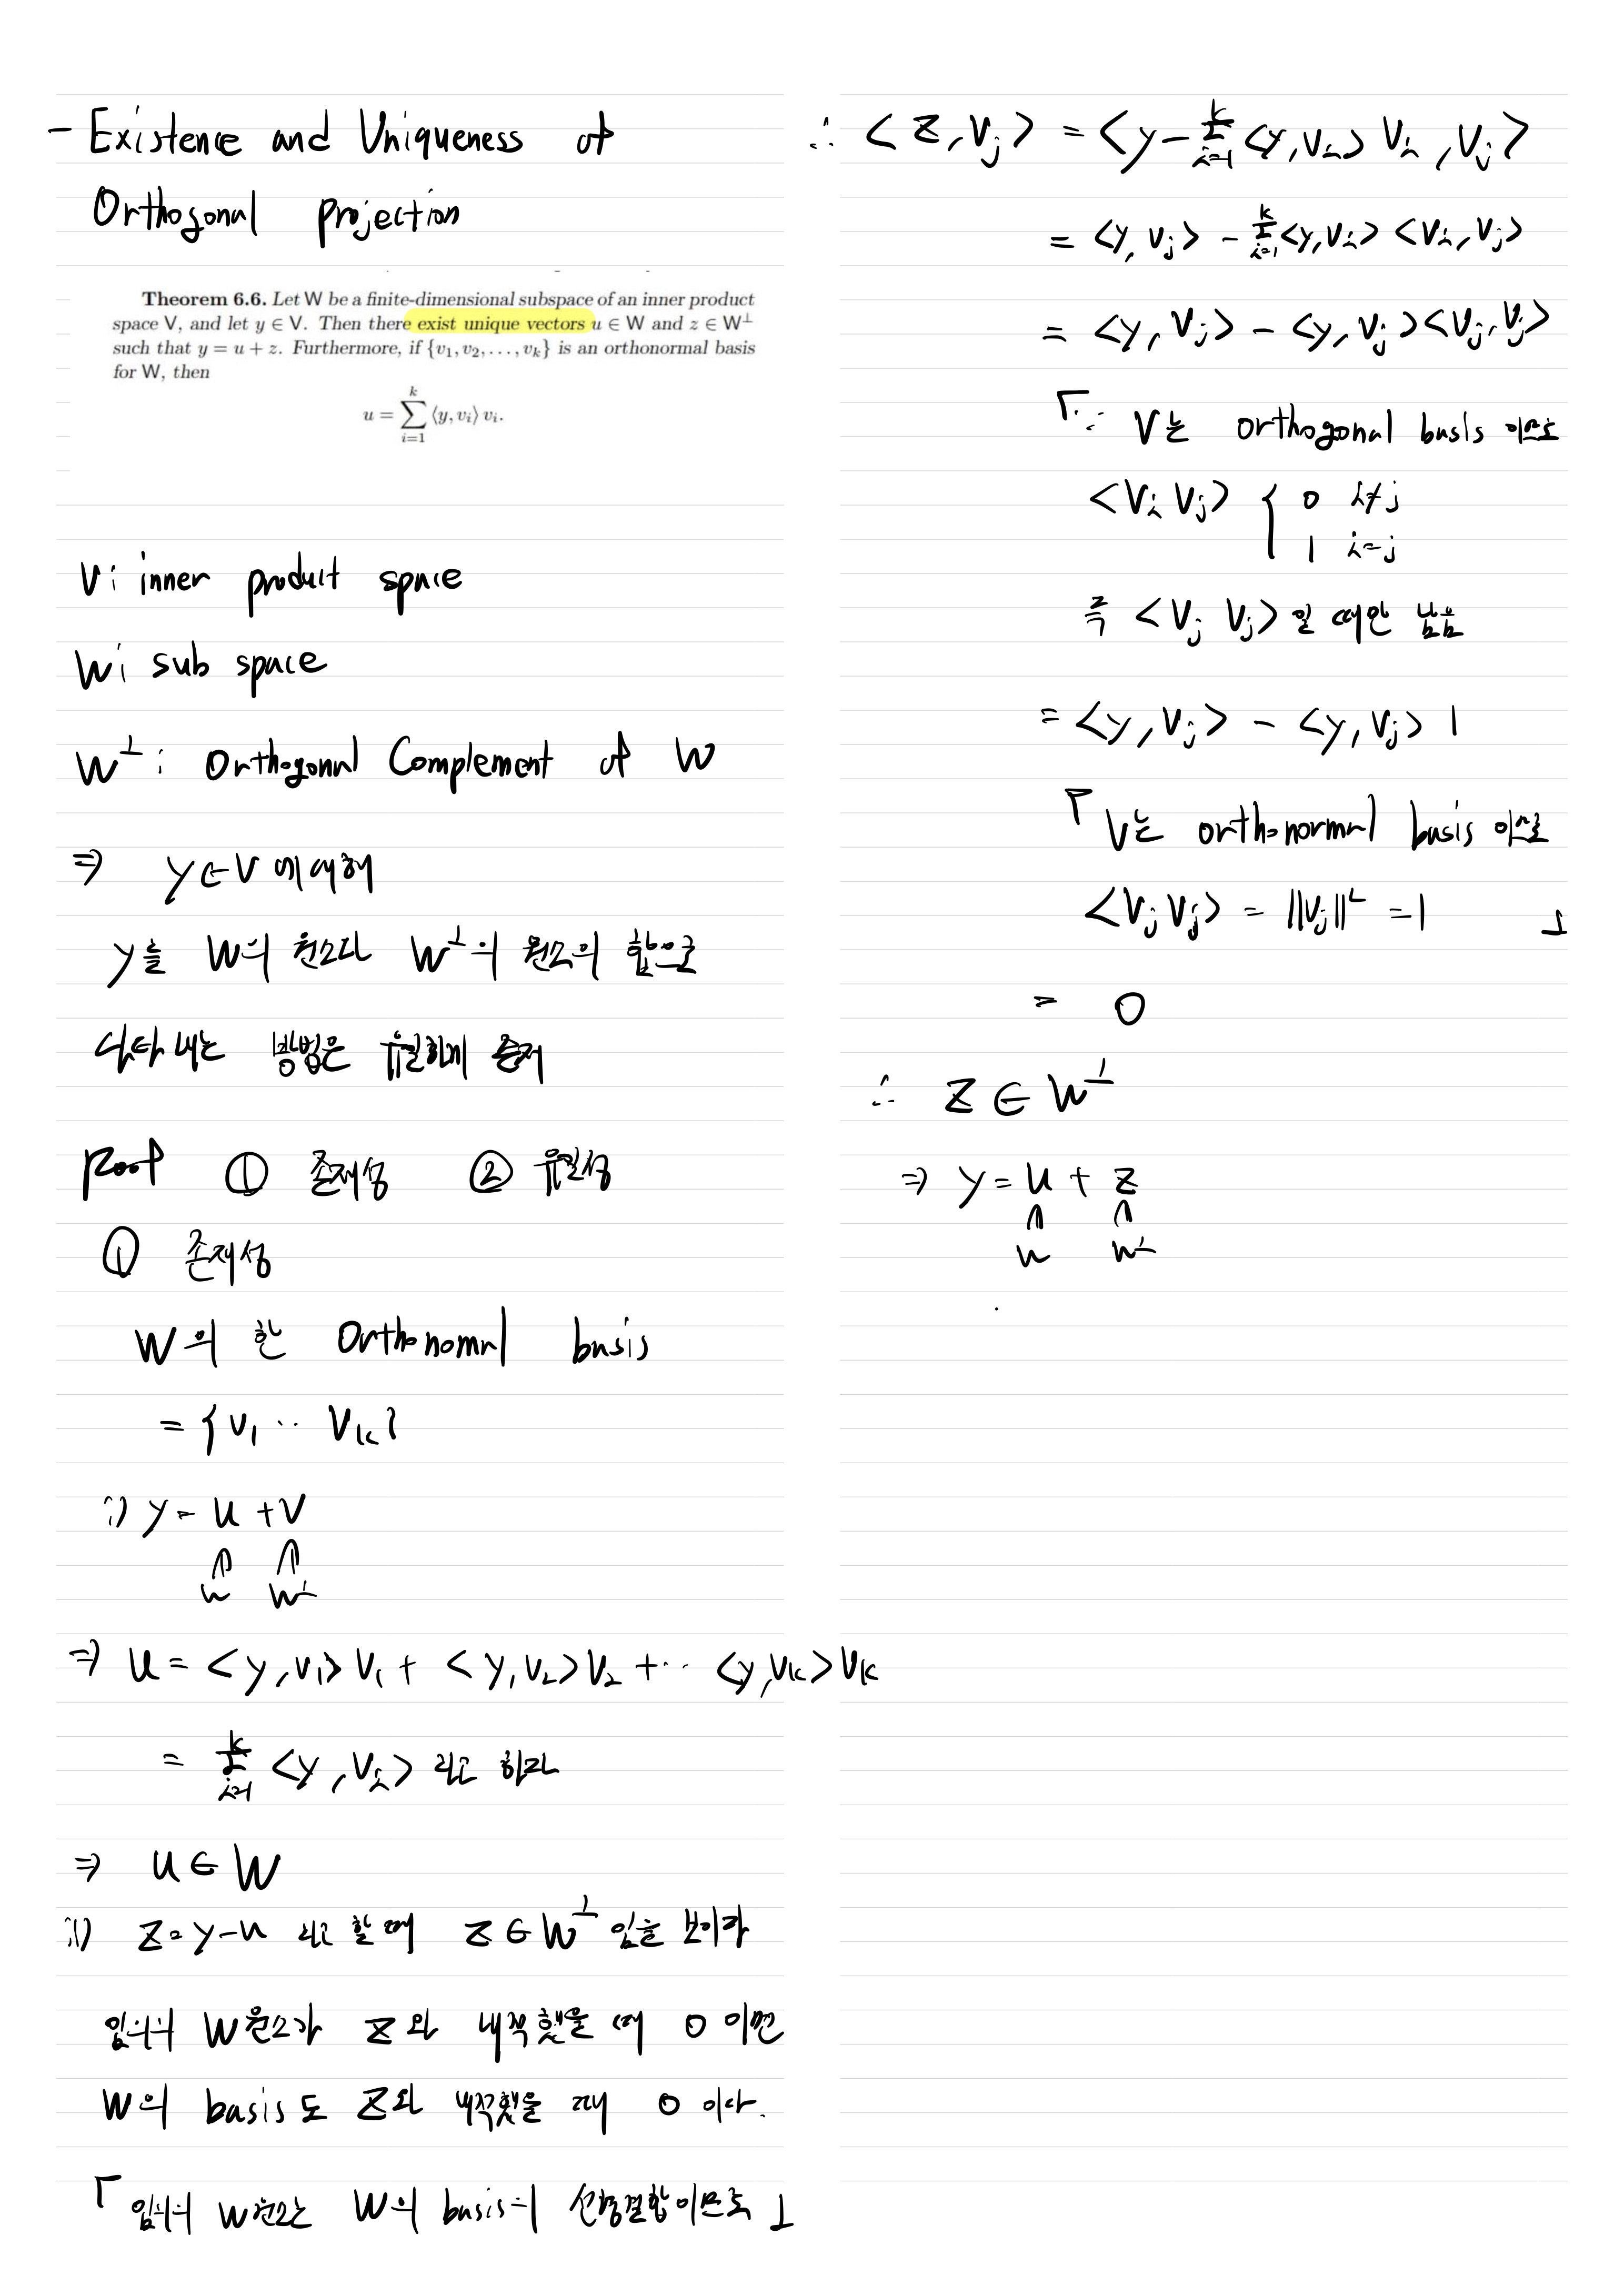 - Existence and Uniqueness of
Orthogonal projection
Theorem 6.6. Let W be a finite-dimensional subspace of an inner product
space V, and let y ∈ V. Then there exist unique vectors u ∈ W and z ∈ W⊥
such that y = u + z. Furthermore, if {v₁, v₂, . . . , vₖ} is an orthonormal basis
for W, then
u = ∑ᵢ₌₁ᵏ ⟨y, vᵢ⟩ vᵢ.
V: inner product space
W: sub space
W⊥: Orthogonal Complement of W
⇒ y∈V 에 대해
y를 W의 원소와 W⊥의 원소의 합으로
나타내는 방법은 유일하게 존재
proof ① 존재성 ② 유일성
① 존재성
W의 한 Orthonomal basis
= {v₁ ‥ vₖ}
i) y = u + v
∈ ∈
W W⊥
⇒ u = <y, v₁> v₁ + <y, v₂> v₂ + ‥ <y, vₖ> vₖ
= ∑ᵢ₌₁ᵏ <y, vᵢ> 라고 하자
⇒ u ∈ W
ii) z = y-u 라고 할 때 z ∈ W⊥ 임을 보이자
임의의 W원소가 z와 내적했을 때 0 이면
W의 basis도 z와 내적했을 때 0 이다.
「임의의 W원소는 W의 basis의 선형결합이므로 」
∴ <z, vⱼ> = <y - ∑ᵢ₌₁ᵏ <y, vᵢ> vᵢ, vⱼ>
= <y, vⱼ> - ∑ᵢ₌₁ᵏ <y, vᵢ> <vᵢ, vⱼ>
= <y, vⱼ> - <y, vⱼ> <vⱼ, vⱼ>
「∵ V는 orthogonal basis 이므로
<vᵢ vⱼ> { 0 i≠j
1 i=j
즉 <vⱼ vⱼ> 일 때만 남음
= <y, vⱼ> - <y, vⱼ> 1
「V는 orthonormal basis 이므로
<vⱼ vⱼ> = ||vⱼ||² = 1 」
= 0
∴ z ∈ W⊥
⇒ y = u + z
∈ ∈
W W⊥